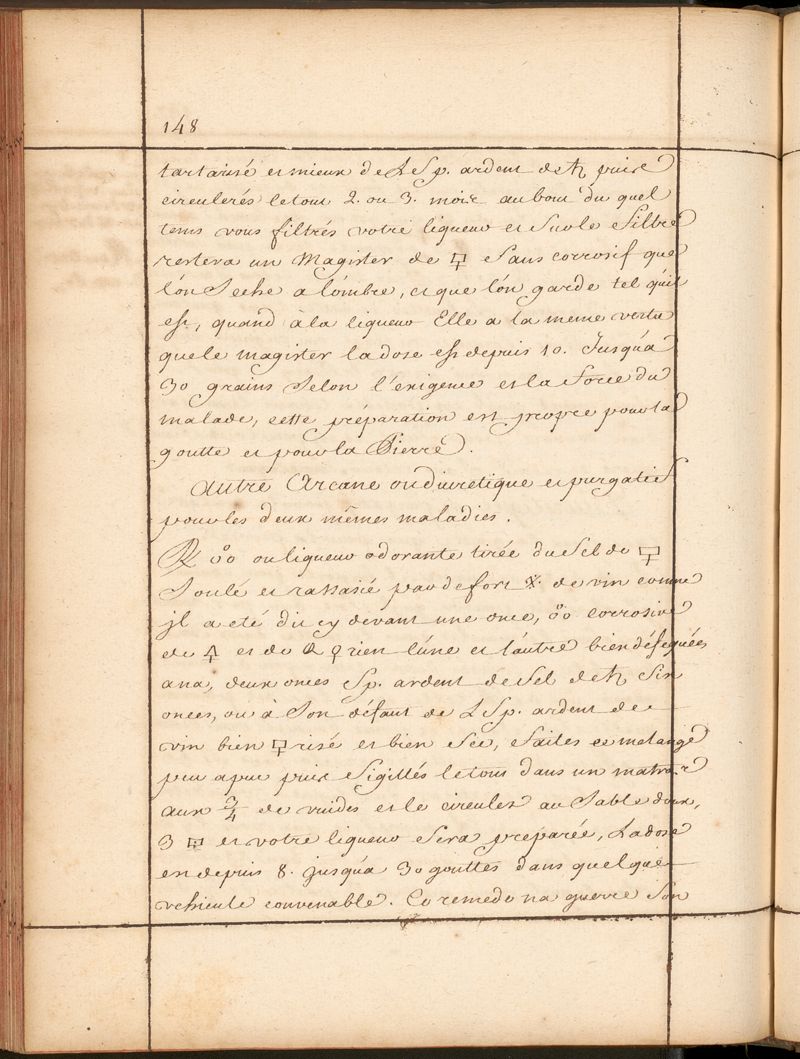 148
tartarisé et mieux de L Sp. ardent de ♄ puis
circulerés le tout 2. ou 3. mois au bout du quel
tems vous filtrés votre liqueur et Sur le Filtre
restera un Magister de 🜿 Sans corrosif que
l'on Seche a l'ombre, et que l'on garde tel qu'il
est, quand à la liqueur Elle a la meme vertu
que le magister la dose est depuis 10. Jusqu'a
30 grains Selon l'exigence et la Force du
malade, cette préparation est propre pour la
goutte et pour la Pierre.
Autre Arcane ou diuretique et purgatif
pour les deux mêmes maladies.
℞ o°o ou liqueur odorante tirée du Sel de 🜿
Soulé et rassasié par de fort de vin comme
jl a eté dit cy devant une once, o°o corrosive
de 🜍 et de ☿ rien l'une et l'autre bien déféquées
ana, deux onces Sp. ardent de Sel de ♄ Six
onces, ou à Son défaut de L Sp. ardent de
vin bien 🜿risé et bien Sec, Faites ce melange
peu a peu puis Sigillés le tout dans un matras
aux 3/4 de vuides et le circulez au Sable doux,
3 et votre liqueur Sera preparée, La dose
en depuis 8. jusqu'a 30 gouttes dans quelque
vehicule convenable. Ce remede n'a guerre Son